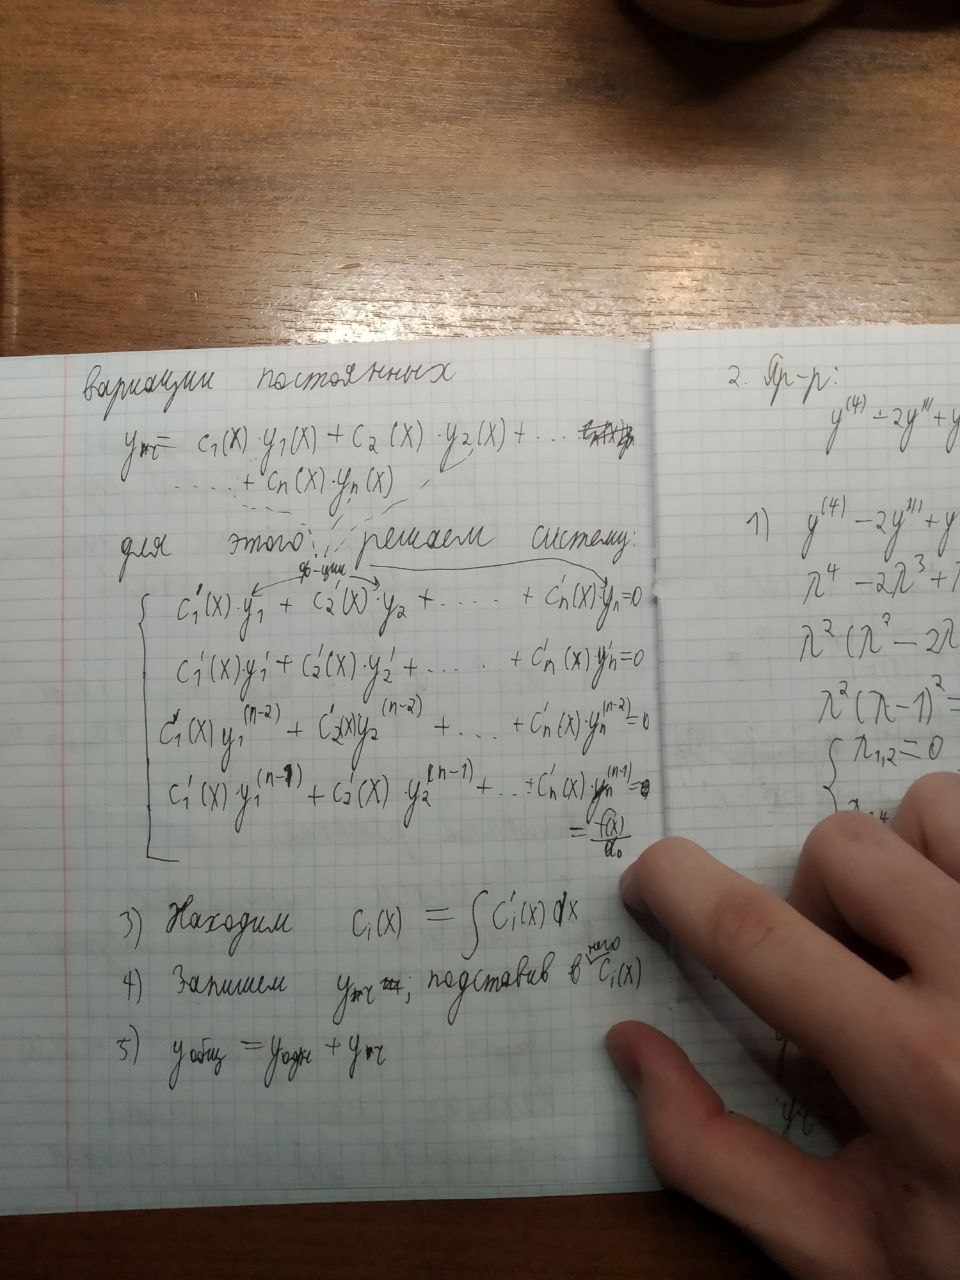 вариации постоянных
yч = C₁(x)·y₁(x) + C₂(x)·y₂(x) + ...
..... + Cn(x)·yn(x)
для этого решаем систему:
ф-ции
C₁'(x)·y₁ + C₂'(x)·y₂ + ..... + Cn'(x)·yn=0
C₁'(x)·y₁' + C₂'(x)·y₂' + ..... + Cn'(x)yn'=0
C₁'(x)y₁⁽ⁿ⁻²⁾ + C₂'(x)y₂⁽ⁿ⁻²⁾ + .... + Cn'(x)·yn⁽ⁿ⁻²⁾=0
C₁'(x)·y₁⁽ⁿ⁻¹⁾ + C₂'(x)·y₂⁽ⁿ⁻¹⁾ + ... + Cn'(x)·yn⁽ⁿ⁻¹⁾=
= f(x)/a₀
3) Находим Ci(x) = ∫Ci'(x)dx
4) Запишем yч; подставив в него Ci(x)
5) yобщ = yодн + yч
2. Пр-р:
y⁽⁴⁾ - 2y''' + y
1) y⁽⁴⁾ - 2y''' + y
λ⁴ - 2λ³ + λ
λ²(λ² - 2λ
λ²(λ-1)² =
λ₁,₂ = 0